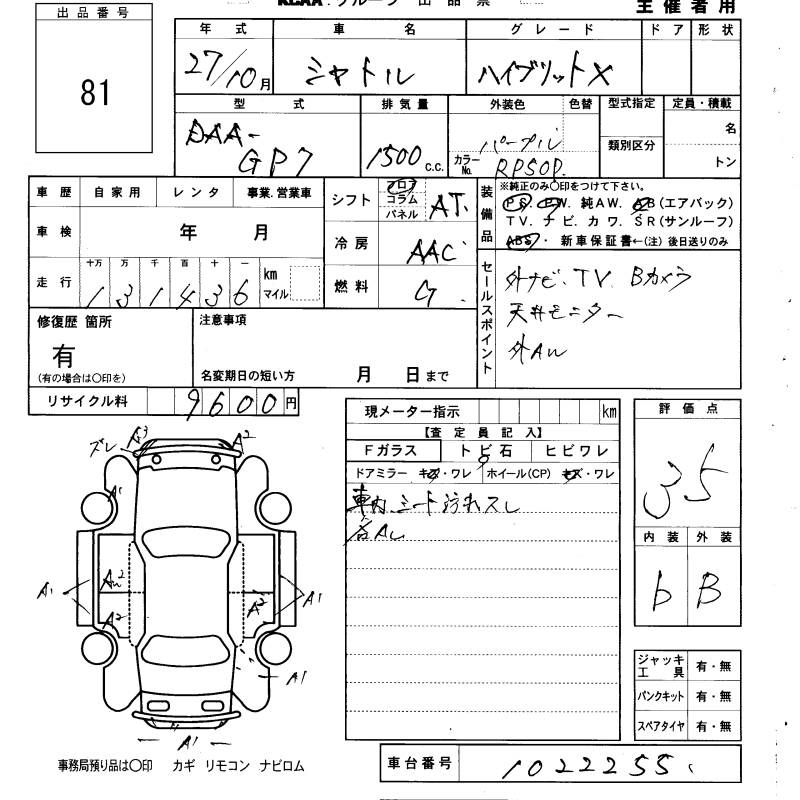 KCAA グループ 出品票
主催者用
出品番号
81
年式 車名 グレード ドア 形状
27/10月 シャトル ハイブリットX
型式 排気量 外装色 色替 型式指定 定員・積載
DAA-GP7 1500 c.c. パープル カラーNo. RP50P. 類別区分 名 トン
車歴 自家用 レンタ 事業.営業車
シフト フロア コラム パネル AT.
装備品 ※純正のみ○印をつけて下さい。
PS. PW. 純AW. AB(エアバック)
TV. ナビ. カワ. SR(サンルーフ)
ABS. 新車保証書←(注) 後日送りのみ
車検 年 月
冷房 AAC
走行 十万 万 千 百 十 一
131436 km マイル
燃料 G
セールスポイント
外ナビ.TV. Bカメラ
天井モニター
外AW
修復歴 箇所
有
(有の場合は○印を)
注意事項
名変期日の短い方 月 日まで
リサイクル料 9600円
現メーター指示 km
【査定員記入】
Fガラス トビ石 ヒビワレ
ドアミラー キズ・ワレ ホイール(CP) キズ・ワレ
車内シート汚れスレ
評価点
3.5
内装 外装
b B
ズレ A2
A1
A1 A2 A1
A2 A2
A1
A1
ジャッキ工具 有・無
パンクキット 有・無
スペアタイヤ 有・無
事務局預り品は○印 カギ リモコン ナビロム
車台番号 1022255